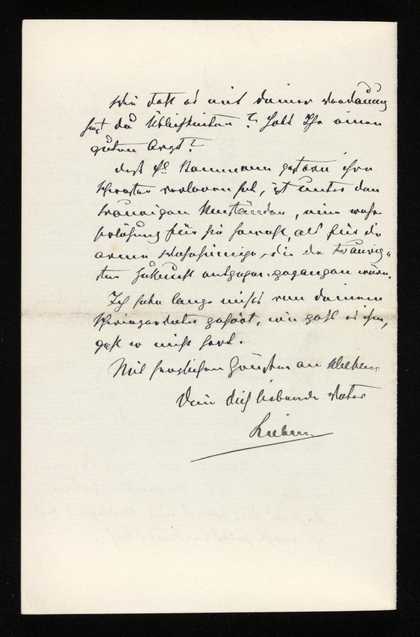 Wie steht es mit deiner Verdauung
hast du Üblichkeiten? Habt Ihr einen
guten Arzt?
Dass Fr. Baumann gestern ihre
Schwester verloren hat, ist unter den
traurigen Umständen, eine wahre
Erlösung für sie sowohl, als für die
arme Wahnsinnige, die der traurig-
sten Zukunft entgegen gegangen wäre.
Ich habe lange nichts von deinem
Schwiegervater gehört, wie geht es ihm,
geht er nicht fort.
Mit herzlichen Grüssen an
Dein dich liebender Vater
Lieben